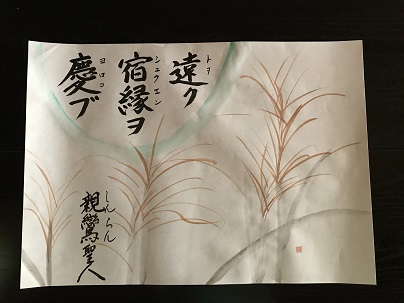 遠ク
トヲ
宿縁ヲ
シュクエン
慶ブ
ヨロコ
親鸞聖人
しんらん